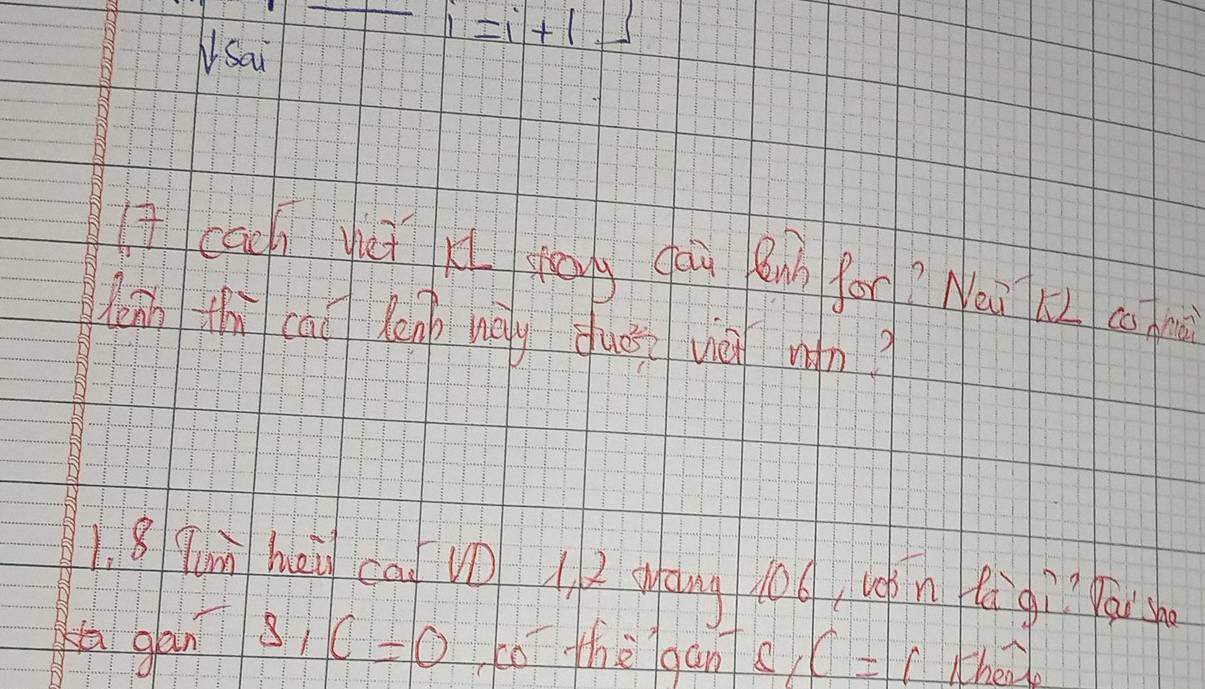 i=i+1
Sai
1.7 cách viết KL trong câu lệnh for? Nếu KL có nhiều
lệnh thì các lệnh này được viết ntn?
1.8 Tìm hiểu các VD 1,2 trang 106, với n là gì? Tại sao
ta gán S, C = 0, có thể gán S, C = 1 không